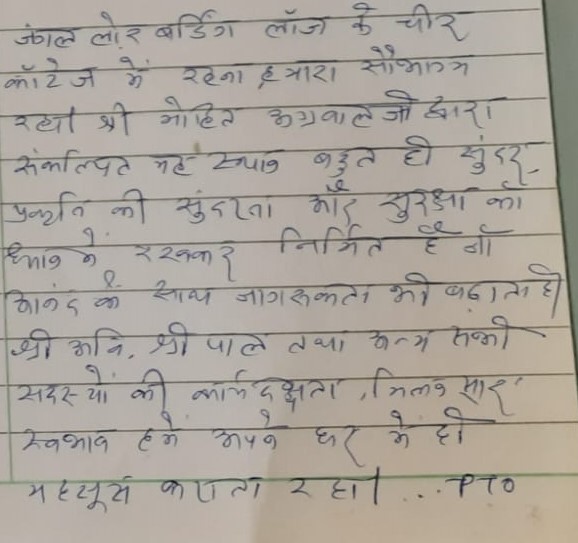 जंगल लोर बर्डिंग लॉज के चीर
कॉटेज में रहना हमारा सौभाग्य
रहा। श्री मोहित अग्रवाल जी द्वारा
संकल्पित यह स्थान बहुत ही सुंदर,
प्रकृति की सुंदरता और सुरक्षा को
ध्यान में रखकर निर्मित है जो
आनंद के साथ जागरूकता भी बढ़ाता है।
श्री अवि, श्री पाल तथा अन्य सभी
सदस्यों की कार्यदक्षता, मिलनसार
स्वभाव हमे अपने घर में ही
महसूस कराता रहा। ...PTO